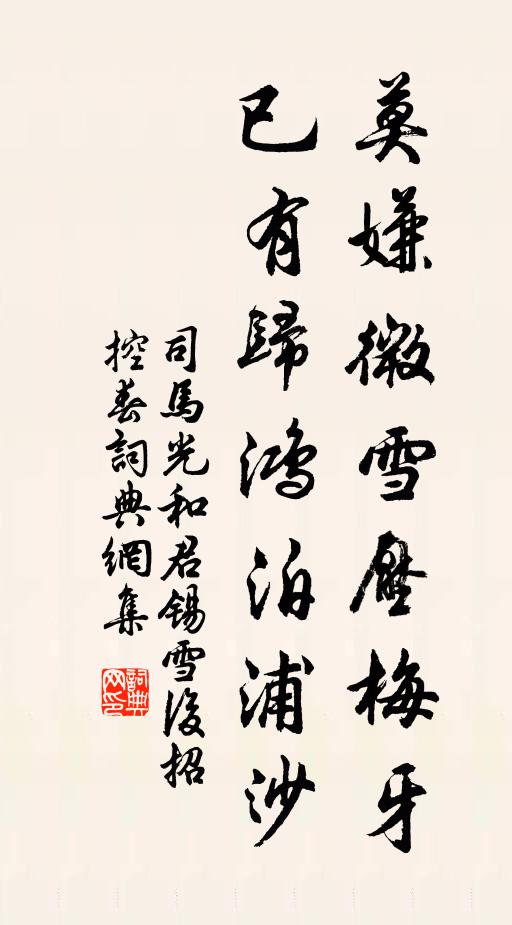 莫嫌微雪壓梅牙
已有歸鴻泊浦沙
司馬光和君錫雪後招
控春詞典網集
詞典
网印